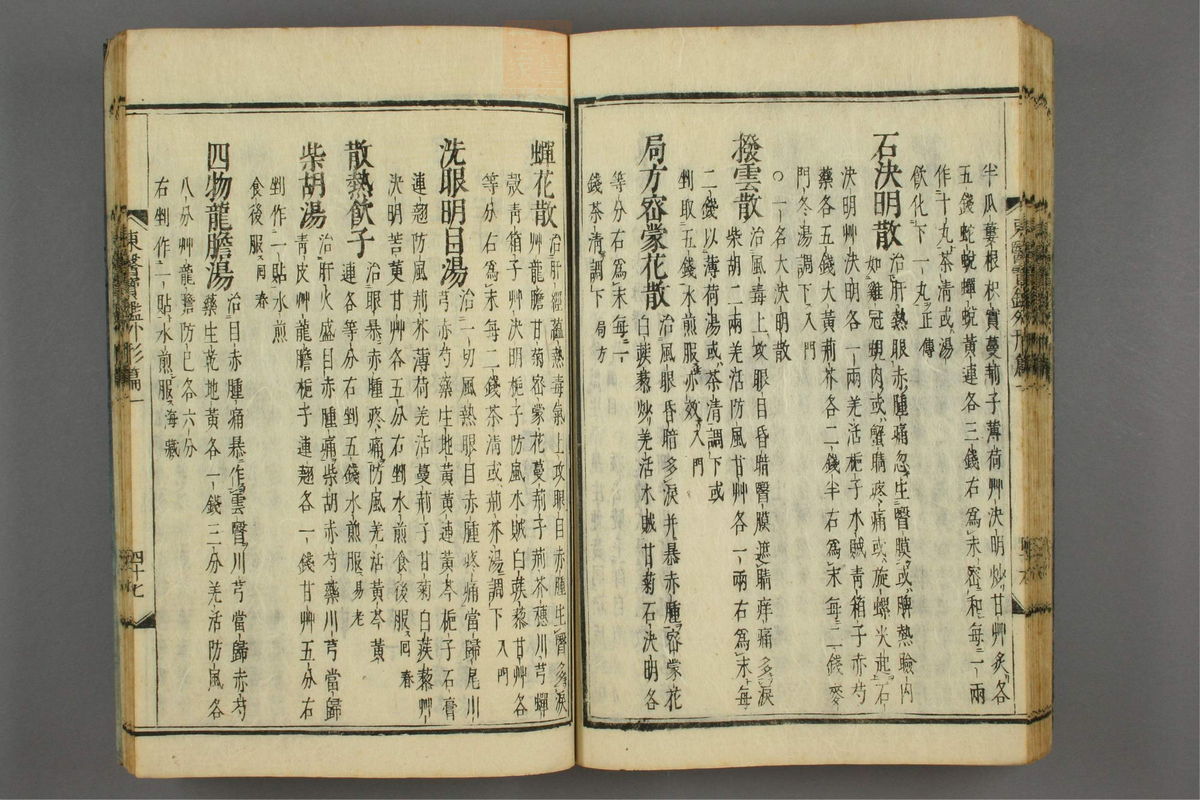 半瓜蔞根枳實蔓荊子薄荷艸決明炒甘艸炙各
五錢蛇蛻蟬蛻黃連各三錢右爲末密和每一兩
作十丸茶淸或湯
飮化下一丸正傳
石決明散治肝熱眼赤腫痛忽生瞖膜或脾熱瞼內
如雞冠蜆肉或蟹睛疼痛或旋螺尖起石
決明艸決明各一兩羌活梔子木賊靑箱子赤芍
藥各五錢大黃荊芥各二錢半右爲末每二錢麥
門冬湯調下入門
○一名大決明散
撥雲散治風毒上攻眼目昏暗瞖膜遮睛痒痛多淚
柴胡二兩羌活防風甘艸各一兩右爲末每
二錢以薄荷湯或茶淸調下或
剉取五錢水煎服亦效入門
局方密蒙花散治風眼昏暗多淚幷暴赤腫密蒙花
白蒺藜炒羌活木賊甘菊石決明各
等分右爲末每二
錢茶淸調下局方
東醫寶鑑外形篇一
蟬花散治肝經蘊熱毒氣上攻眼目赤腫生瞖多淚
艸龍膽甘菊密蒙花蔓荊子荊芥穗川芎蟬
殼靑箱子艸決明梔子防風木賊白蒺藜甘艸各
等分右爲末每二錢茶淸或荊芥湯調下入門
洗眼明目湯治一切風熱眼目赤腫疼痛當歸尾川
芎赤芍藥生地黃黃連黃芩梔子石膏
連翹防風荊芥薄荷羌活蔓荊子甘菊白蒺藜艸
決明苦黃甘艸各五分右剉水煎食後服回春
散熱飮子治眼暴赤腫疼痛防風羌活黃芩黃
連各等分右剉五錢水煎服易老
柴胡湯治肝火盛目赤腫痛柴胡赤芍藥川芎當歸
靑皮艸龍膽梔子連翹各一錢甘艸五分右
剉作一貼水煎
食後服回春
四物龍膽湯治目赤腫痛暴作雲瞖川芎當歸赤芍
藥生乾地黃各一錢三分羌活防風各
八分艸龍膽防己各六分
右剉作一貼水煎服海藏
東醫寶鑑外形篇一
四十七